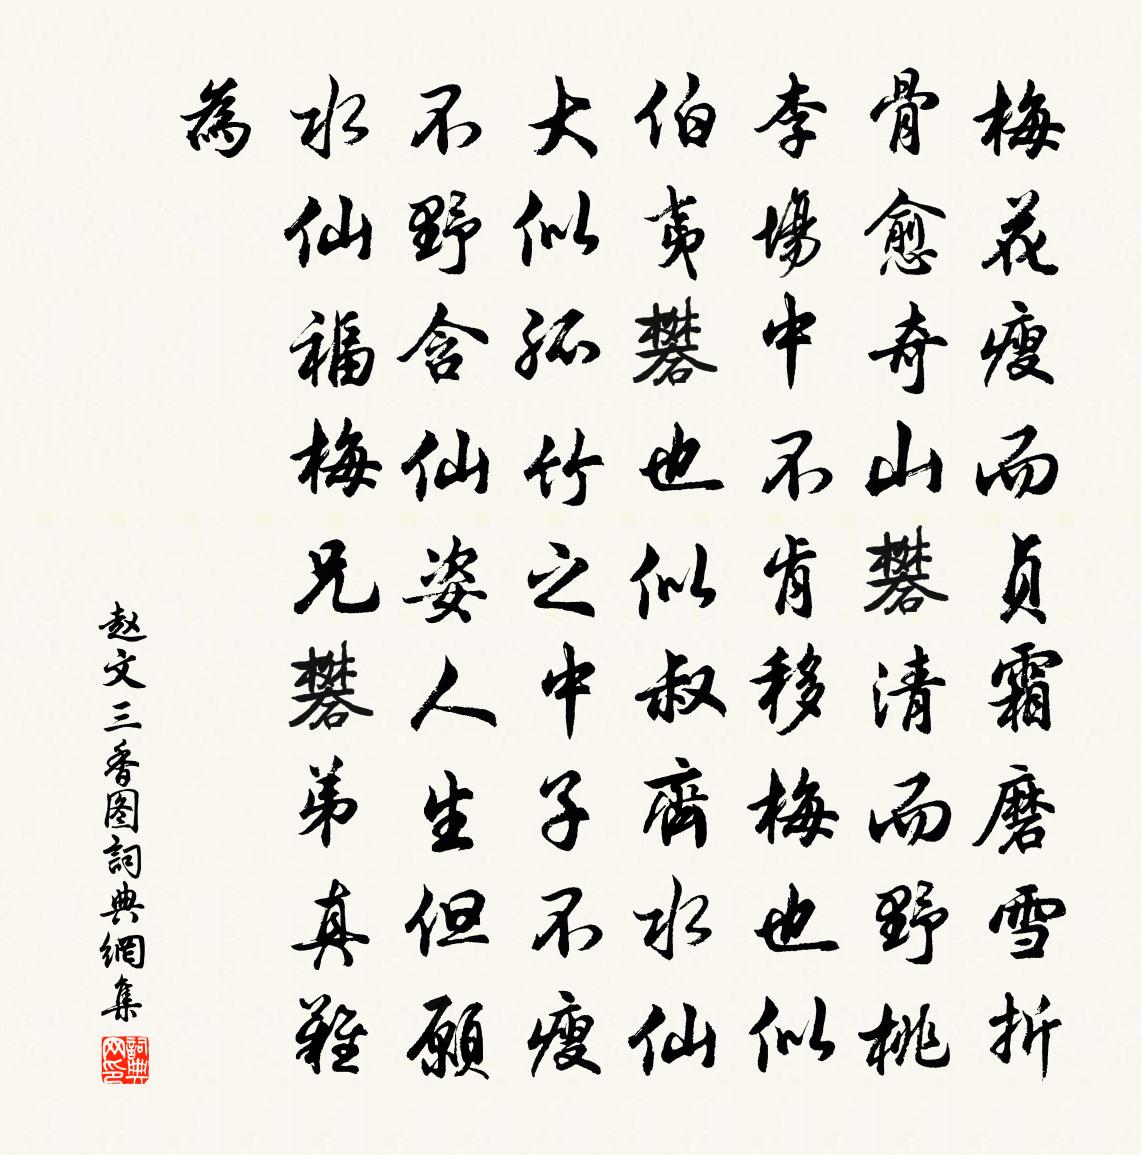 梅花瘦而貞霜磨雪折
骨愈奇山礬清而野桃
李場中不肯移梅也似
伯夷礬也似叔齊水仙
大似孤竹之中子不瘦
不野含仙姿人生但願
水仙福梅兄礬弟真難
為
赵文三香图詞典網集
詞典网印